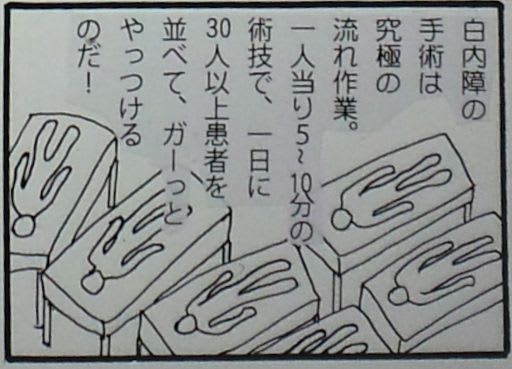 白内障の
手術は
究極の
流れ作業。
一人当り5~10分の
術技で、一日に
30人以上患者を
並べて、ガーっと
やっつける
のだ!